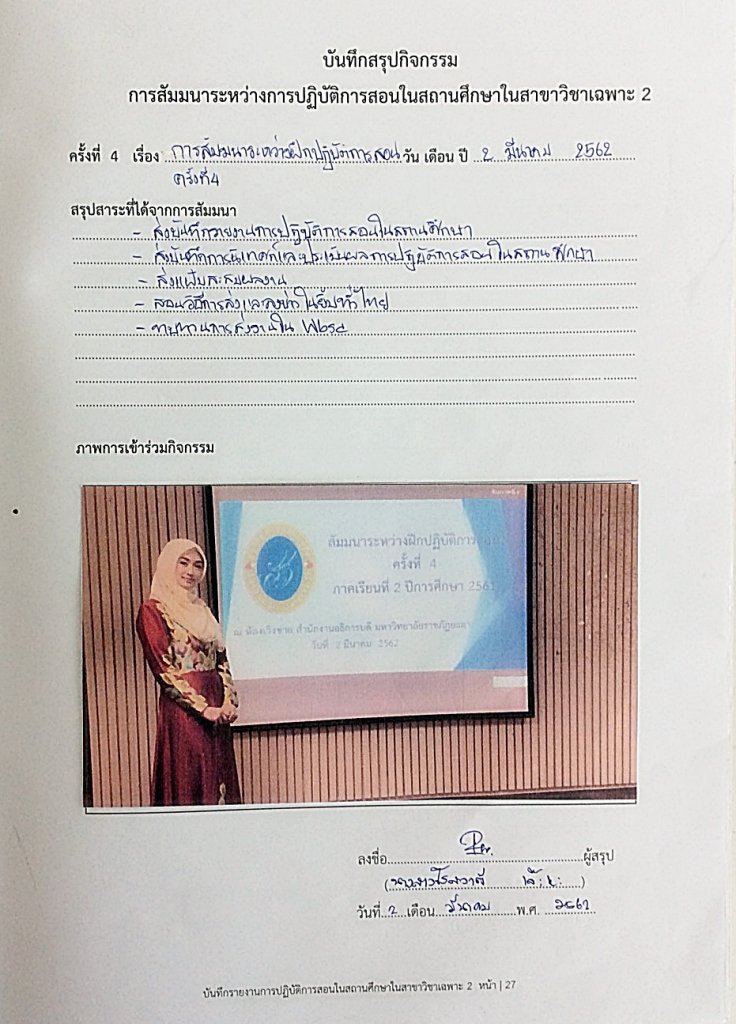 บันทึกสรุปกิจกรรม
การสัมมนาระหว่างการปฏิบัติการสอนในสถานศึกษาในสาขาวิชาเฉพาะ 2
ครั้งที่ 4 เรื่อง การสัมมนาระหว่างฝึกปฏิบัติการสอน วัน เดือน ปี 2 มีนาคม 2562
ครั้งที่ 4
สรุปสาระที่ได้จากการสัมมนา
- ส่งบันทึกรายงานการปฏิบัติการสอนในสถานศึกษา
- ส่งบันทึกการนิเทศก์และประเมินผลการปฏิบัติการสอนในสถานศึกษา
- ส่งแฟ้มสะสมผลงาน
- สอนวิธีการส่งและลงข่าวใน
- การส่งงานใน
ภาพการเข้าร่วมกิจกรรม
สัมมนาระหว่างฝึกปฏิบัติการสอน
ครั้งที่ 4
ภาคเรียนที่ 2 ปีการศึกษา 2561
ณ สำนักงานอธิการบดี มหาวิทยาลัยราชภัฏยะลา
วันที่ 2 มีนาคม 2562
ลงชื่อ ผู้สรุป
วันที่ 2 เดือน มีนาคม พ.ศ. 2562
บันทึกรายงานการปฏิบัติการสอนในสถานศึกษาในสาขาวิชาเฉพาะ 2 หน้า | 27